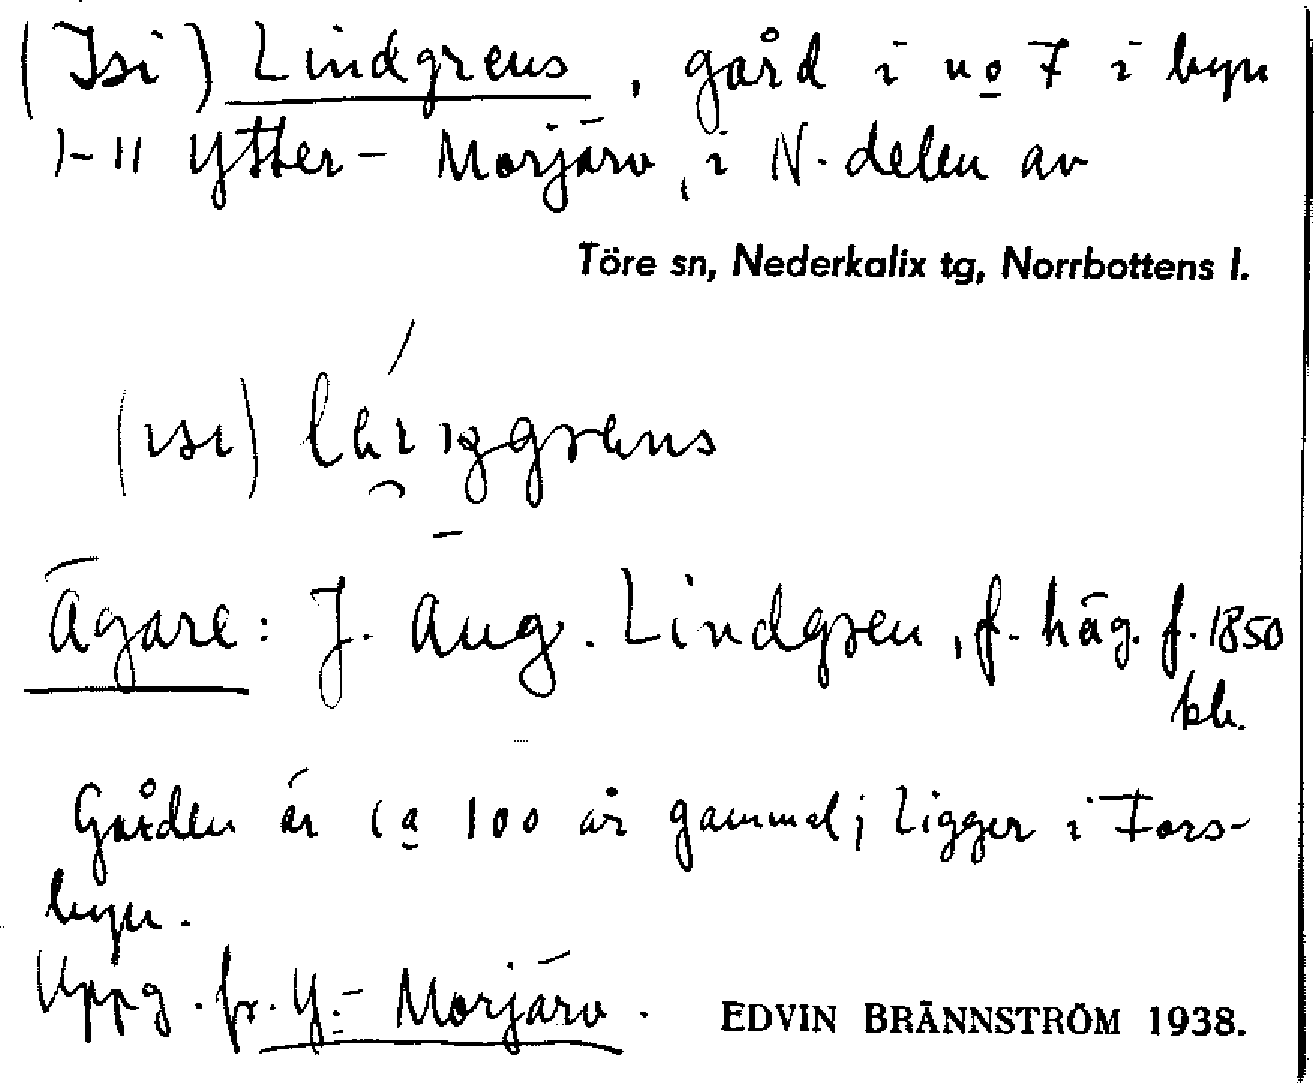 (Isi) Lindgrens, gård i no 7 i byn
1-11 Ytter-Morjärv, i N. delen av
Töre sn, Nederkalix tg, Norrbottens l.
(ısı)
Ägare: J. Aug. Lindgren, f. häg. f. 1850
Gården är ca 100 år gammal; ligger i Fors-
byn.
Uppg. fr. Y.-Morjärv.
EDVIN BRÄNNSTRÖM 1938.